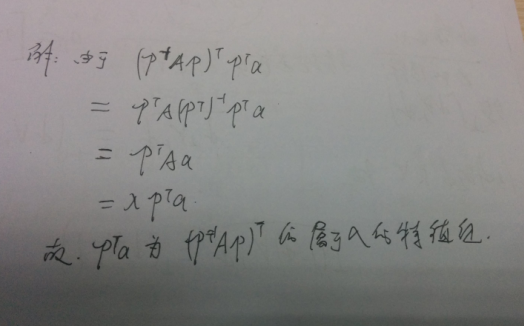 解：由于 (P⁻¹AP)ᵀPᵀα
= PᵀA(Pᵀ)⁻¹Pᵀα
= PᵀAα
= λPᵀα.
故. Pᵀα 为 (P⁻¹AP)ᵀ 的属于λ的特征值.